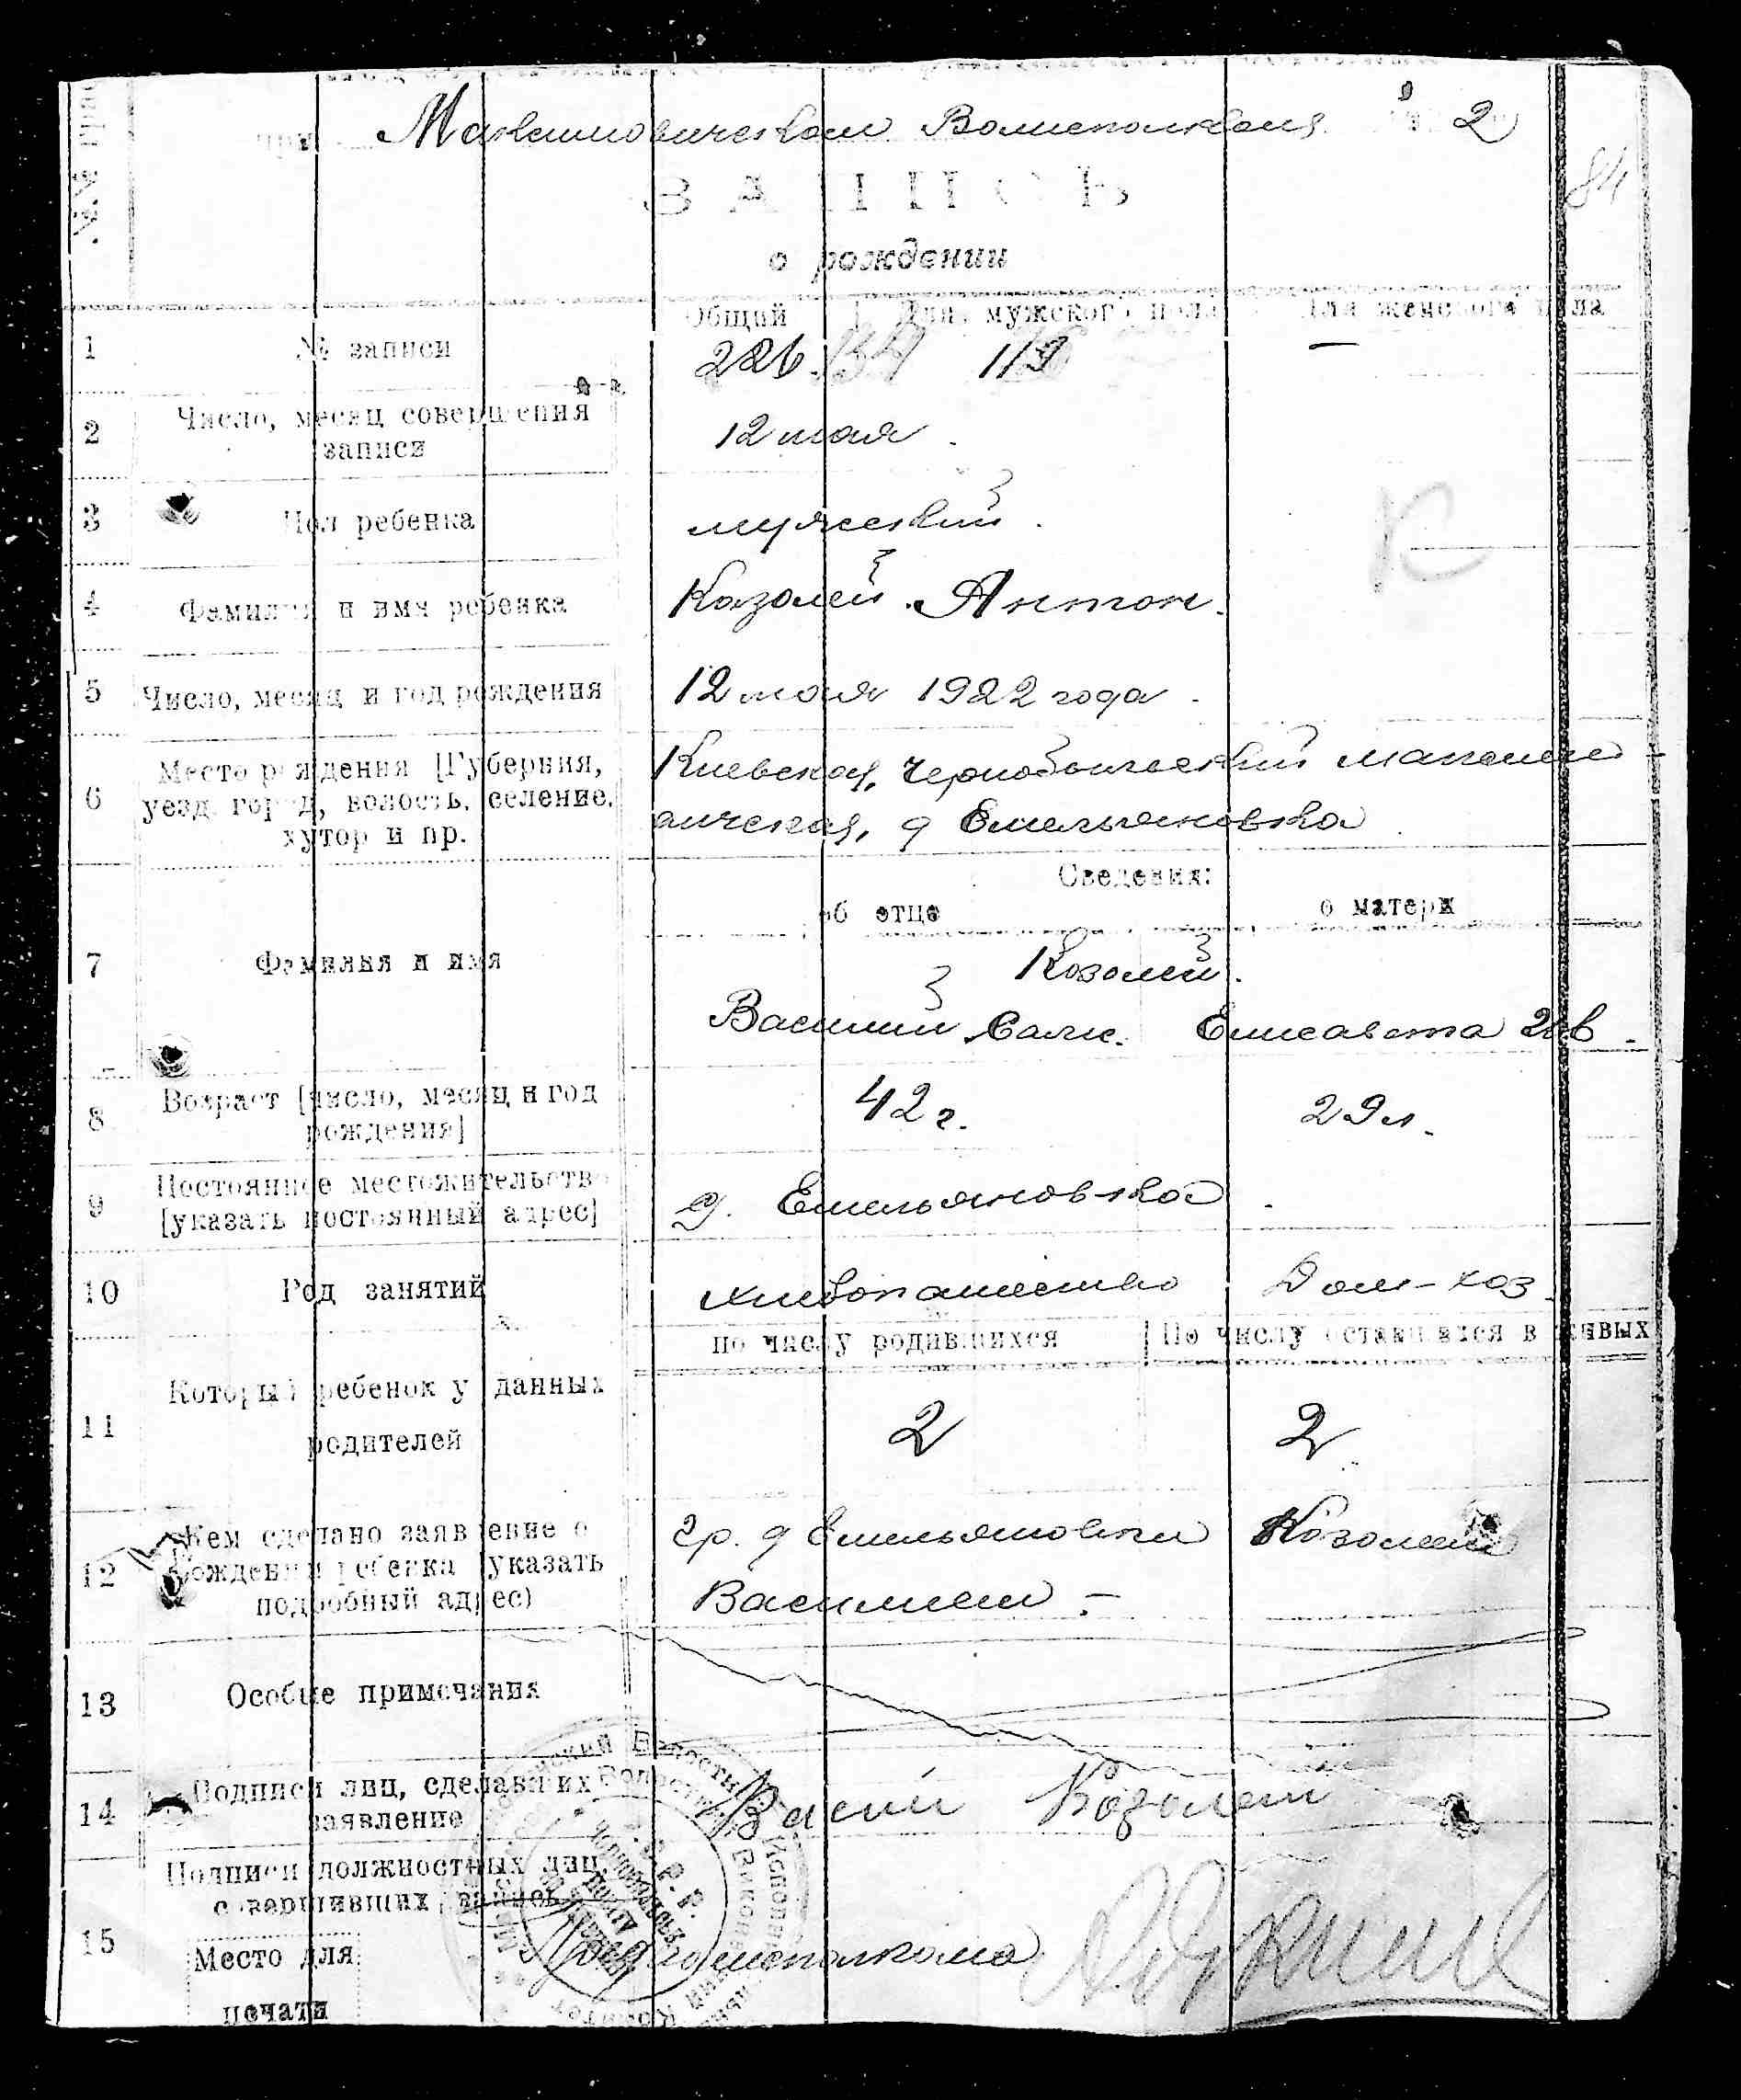 при Максимовическом Волисполкоме 2
84
ЗАПИСЬ
о рождении
Общий Для мужского пола Для женского пола
1 № записи 226 119 —
2 Число, месяц совершения
записи
12 мая
3 Пол ребенка мужеский
К
4 Фамилия и имя ребенка Козолей Антон.
5 Число, месяц и год рождения 12 мая 1922 года
6 Место рождения [Губерния,
уезд, город, волость, селение,
хутор и пр.
Киевская, Чернобыльский
д Емельяновка
Сведения:
об отце о матери
7 Фамилия и имя
Козолей.
Василий Елисавета
8 Возраст [число, месяц и год
рождения]
42 г. 29 л.
9 Постоянное местожительство
[указать постоянный адрес]
д. Емельяновка
10 Род занятий хлебопашество Дом-хоз.
по числу родившихся По числу оставшихся в живых
11 Который ребенок у данных
родителей
2 2
12 Кем сделано заявление о
рождении ребенка (указать
подробный адрес)
гр. д Емельяновки Козолеем
Василием —
13 Особые примечания
14 Подписи лиц, сделавших
заявление
Васий Козолей
15 Подписи должностных лиц,
совершивших запись
Место для
печати